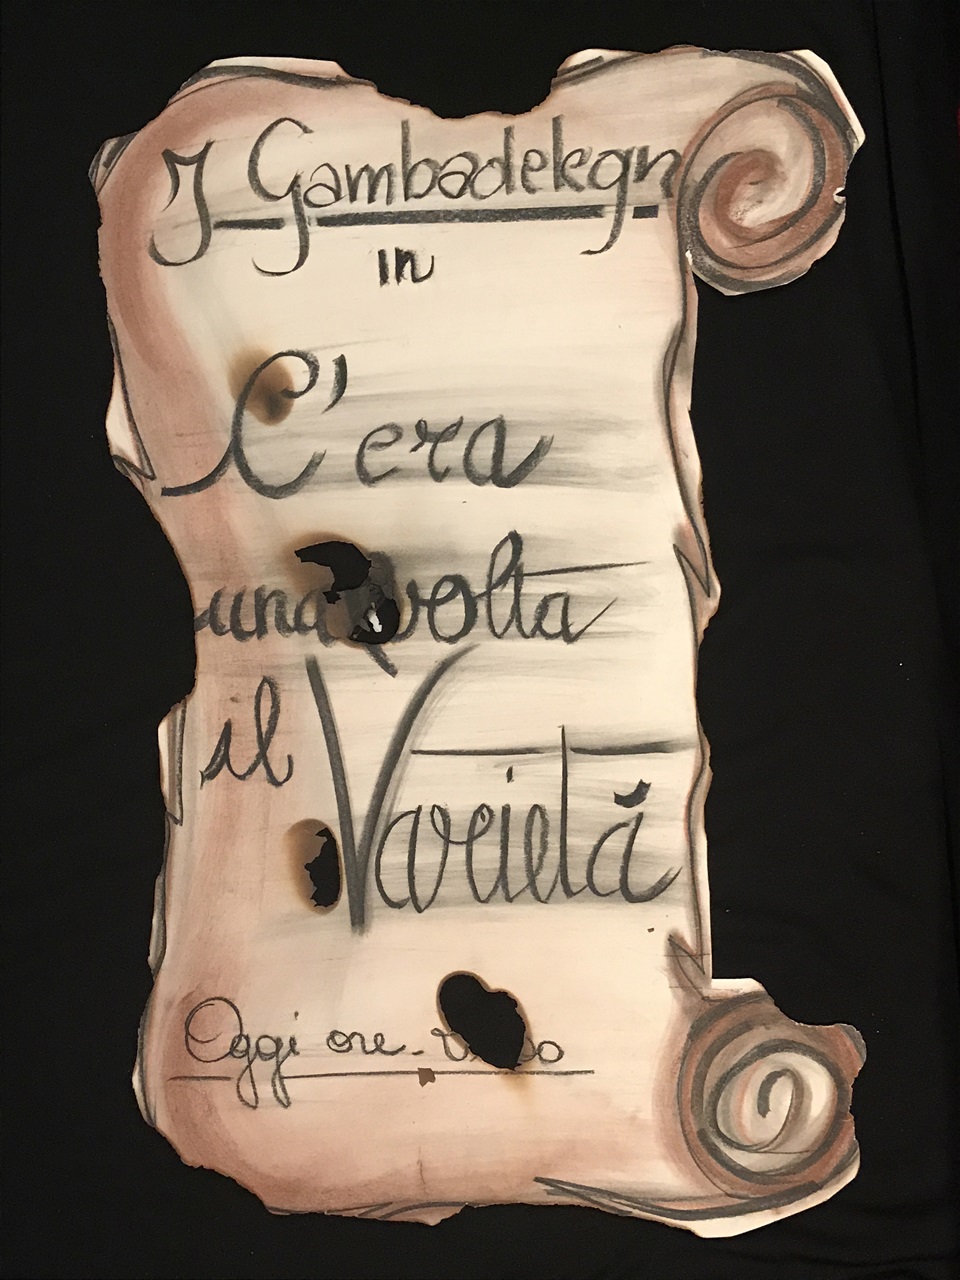 I Gambadelegn
in
C'era
una volta
il
Varietà
Oggi ore